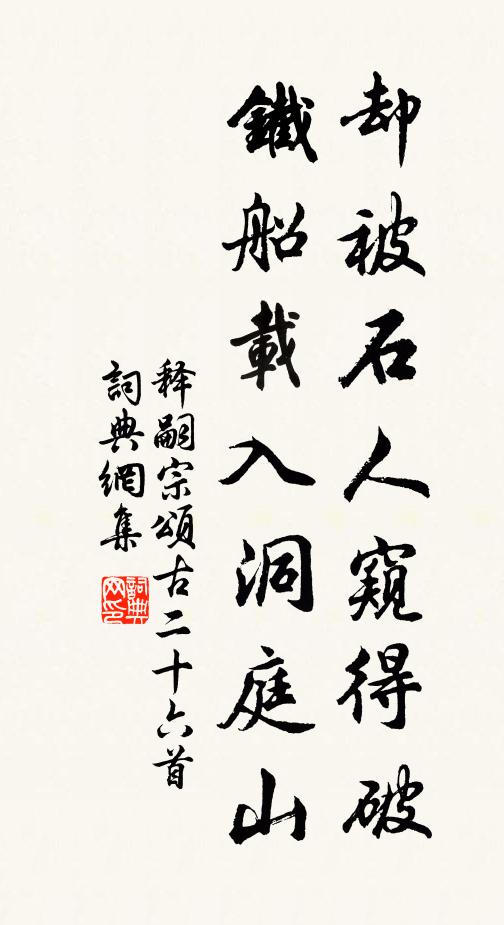 却被石人窺得破
鐵船載入洞庭山
释嗣宗頌古二十六首
詞典網集
詞典网印